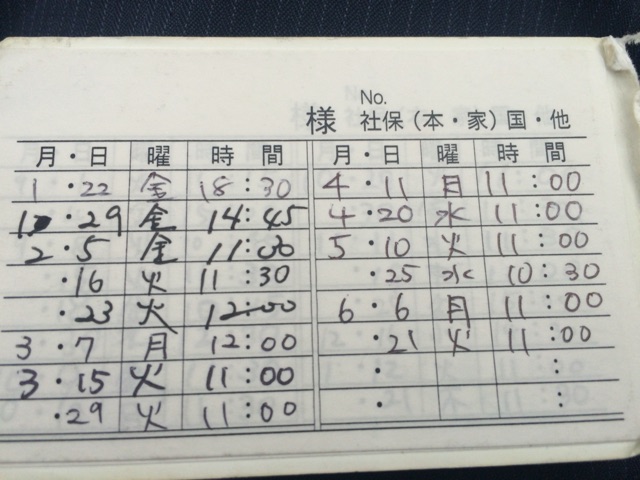 No.
様 社保(本・家)国・他
月・日 曜 時 間
1・22 金 18:30
1・29 金 14:45
2・5 金 11:00
・16 火 11:30
・23 火 12:00
3・7 月 12:00
3・15 火 11:00
・29 火 11:00
月・日 曜 時 間
4・11 日 11:00
4・20 水 11:00
5・10 火 11:00
・25 水 10:30
6・6 月 11:00
・21 火 11:00
・ :
・ :